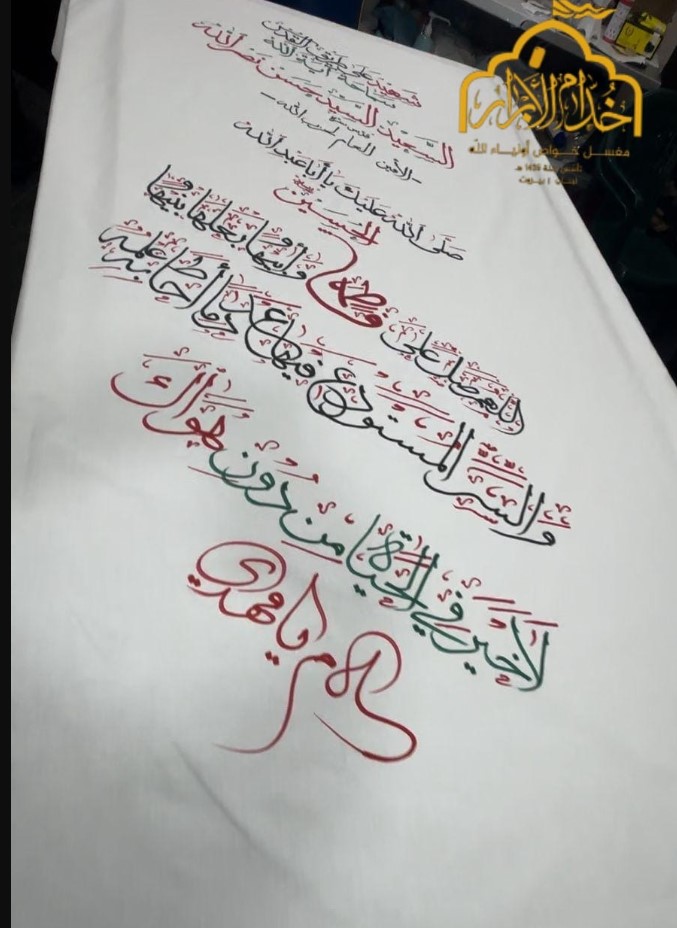 شهيد على طريق القدس
سماحة آية الله
السعيد السيد حسن نصر الله
- الأمين العام لحزب الله -
صلى الله عليك يا أبا عبد الله
الحسين
اللهم صل على فاطمة وأبيها وبعلها وبنيها
والسر المستودع فيها عدد ما أحاط به علمك
لا خير في الحياة من دون هواك
سلام يا مهدي
خدام الأبرار
مغسل خواص أولياء الله
لبنان | بيروت